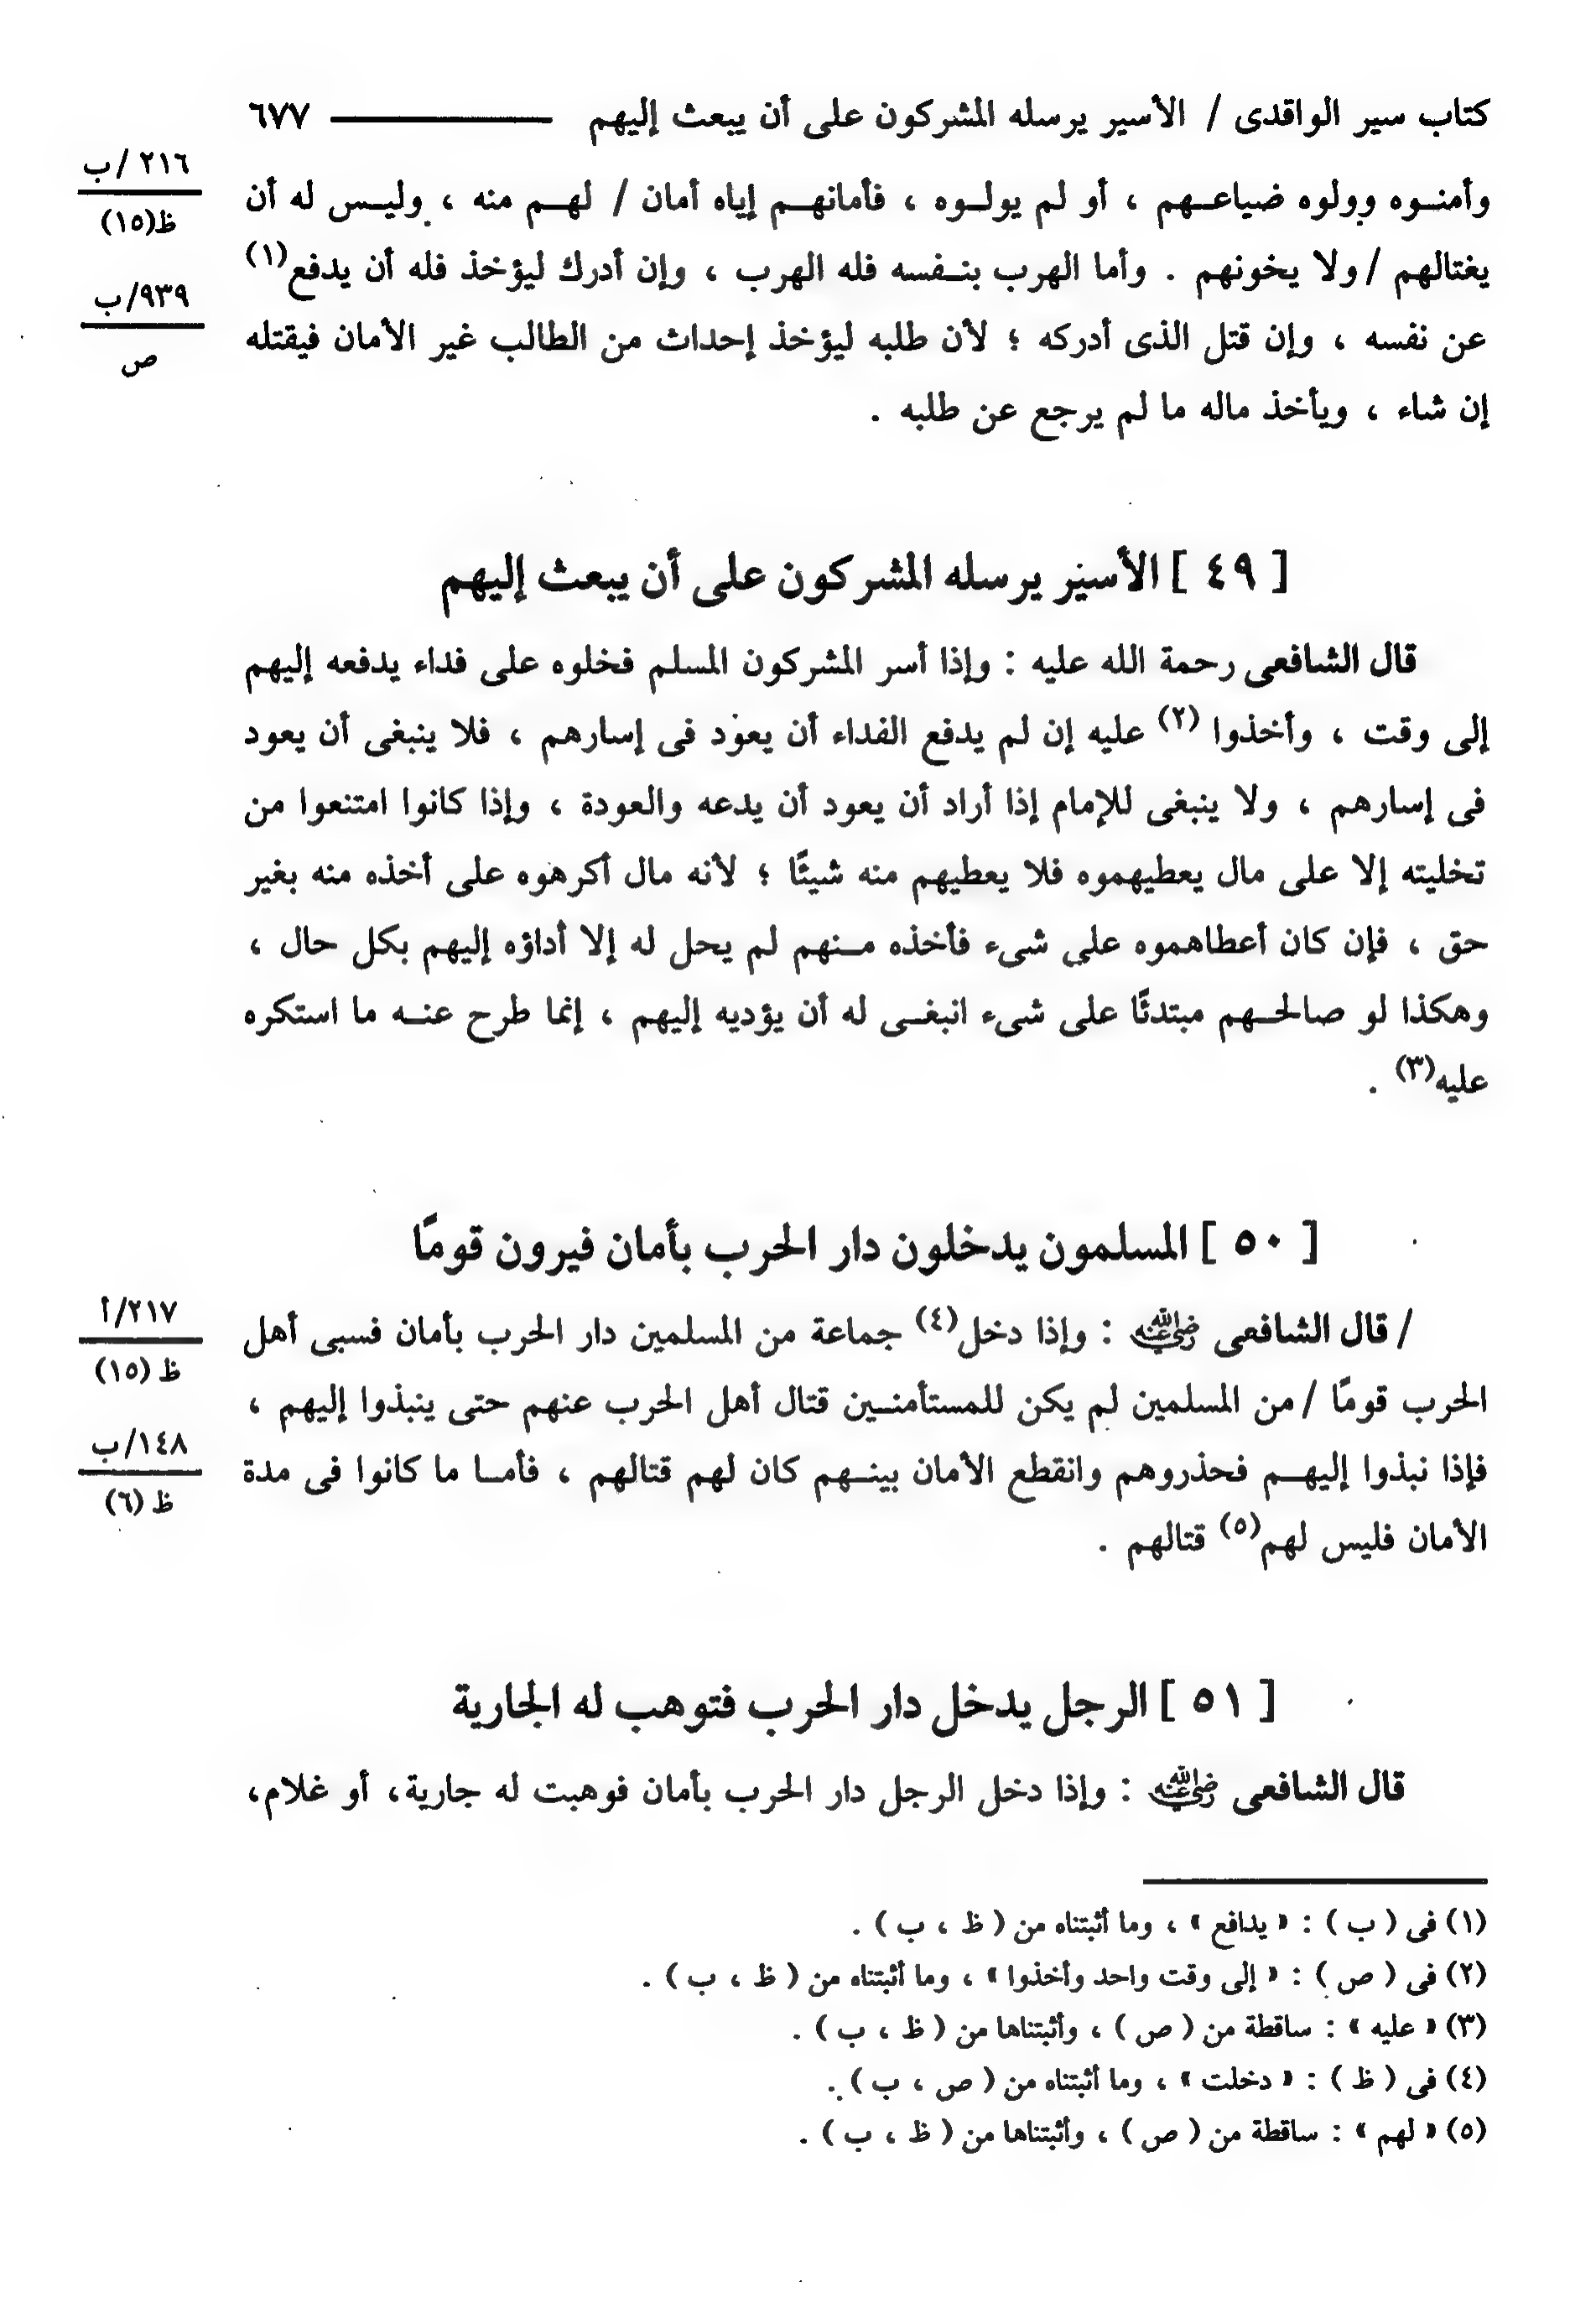 كتاب سير الواقدى / الأسير يرسله المشركون على أن يبعث إليهم ٦٧٧
٢١٦ /ب
ظ(١٥)
وأمنوه وولوه ضياعهم ، أو لم يولوه ، فأمانهم إياه أمان / لهم منه ، وليس له أن
يغتالهم / ولا يخونهم . وأما الهرب بنفسه فله الهرب ، وإن أدرك ليؤخذ فله أن يدفع(١)
٩٣٩/ب
ص
عن نفسه ، وإن قتل الذى أدركه ؛ لأن طلبه ليؤخذ إحداث من الطالب غير الأمان فيقتله
إن شاء ، ويأخذ ماله ما لم يرجع عن طلبه .
[ ٤٩ ] الأسير يرسله المشركون على أن يبعث إليهم
قال الشافعى رحمة الله عليه : وإذا أسر المشركون المسلم فخلوه على فداء يدفعه إليهم
إلى وقت ، وأخذوا (٢) عليه إن لم يدفع الفداء أن يعود فى إسارهم ، فلا ينبغى أن يعود
فى إسارهم ، ولا ينبغى للإمام إذا أراد أن يعود أن يدعه والعودة ، وإذا كانوا امتنعوا من
تخليته إلا على مال يعطيهموه فلا يعطيهم منه شيئًا ؛ لأنه مال أكرهوه على أخذه منه بغير
حق ، فإن كان أعطاهموه على شىء فأخذه منهم لم يحل له إلا أداؤه إليهم بكل حال ،
وهكذا لو صالحهم مبتدئًا على شىء انبغى له أن يؤديه إليهم ، إنما طرح عنه ما استكره
عليه(٣) .
[ ٥٠ ] المسلمون يدخلون دار الحرب بأمان فيرون قومًا
٢١٧/أ
ظ (١٥)
/ قال الشافعى رضي الله عنه : وإذا دخل(٤) جماعة من المسلمين دار الحرب بأمان فسبى أهل
الحرب قومًا / من المسلمين لم يكن للمستأمنين قتال أهل الحرب عنهم حتى ينبذوا إليهم ،
١٤٨/ب
ظ (٦)
فإذا نبذوا إليهم فحذروهم وانقطع الأمان بينهم كان لهم قتالهم ، فأما ما كانوا فى مدة
الأمان فليس لهم(٥) قتالهم .
[ ٥١ ] الرجل يدخل دار الحرب فتوهب له الجارية
قال الشافعى رضي الله عنه : وإذا دخل الرجل دار الحرب بأمان فوهبت له جارية، أو غلام،
(١) فى ( ب ) : « يدافع » ، وما أثبتناه من ( ظ ، ب ) .
(٢) فى ( ص ) : « إلى وقت واحد وأخذوا » ، وما أثبتناه من ( ظ ، ب ) .
(٣) « عليه » : ساقطة من ( ص ) ، وأثبتناها من ( ظ ، ب ) .
(٤) فى ( ظ ) : « دخلت » ، وما أثبتناه من ( ص ، ب ) .
(٥) « لهم » : ساقطة من ( ص ) ، وأثبتناها من ( ظ ، ب ) .